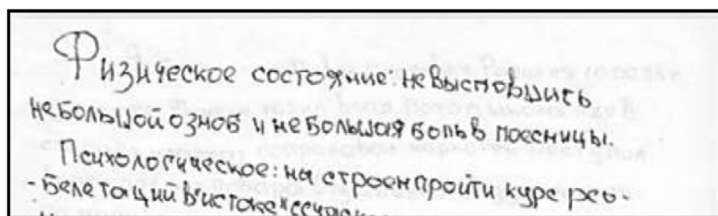 Физическое состояние: не высновшись
небольшой озноб и небольшая боль в поесницы.
Психологическое: на строен пройти курс реа-
- белетации в "истоке"